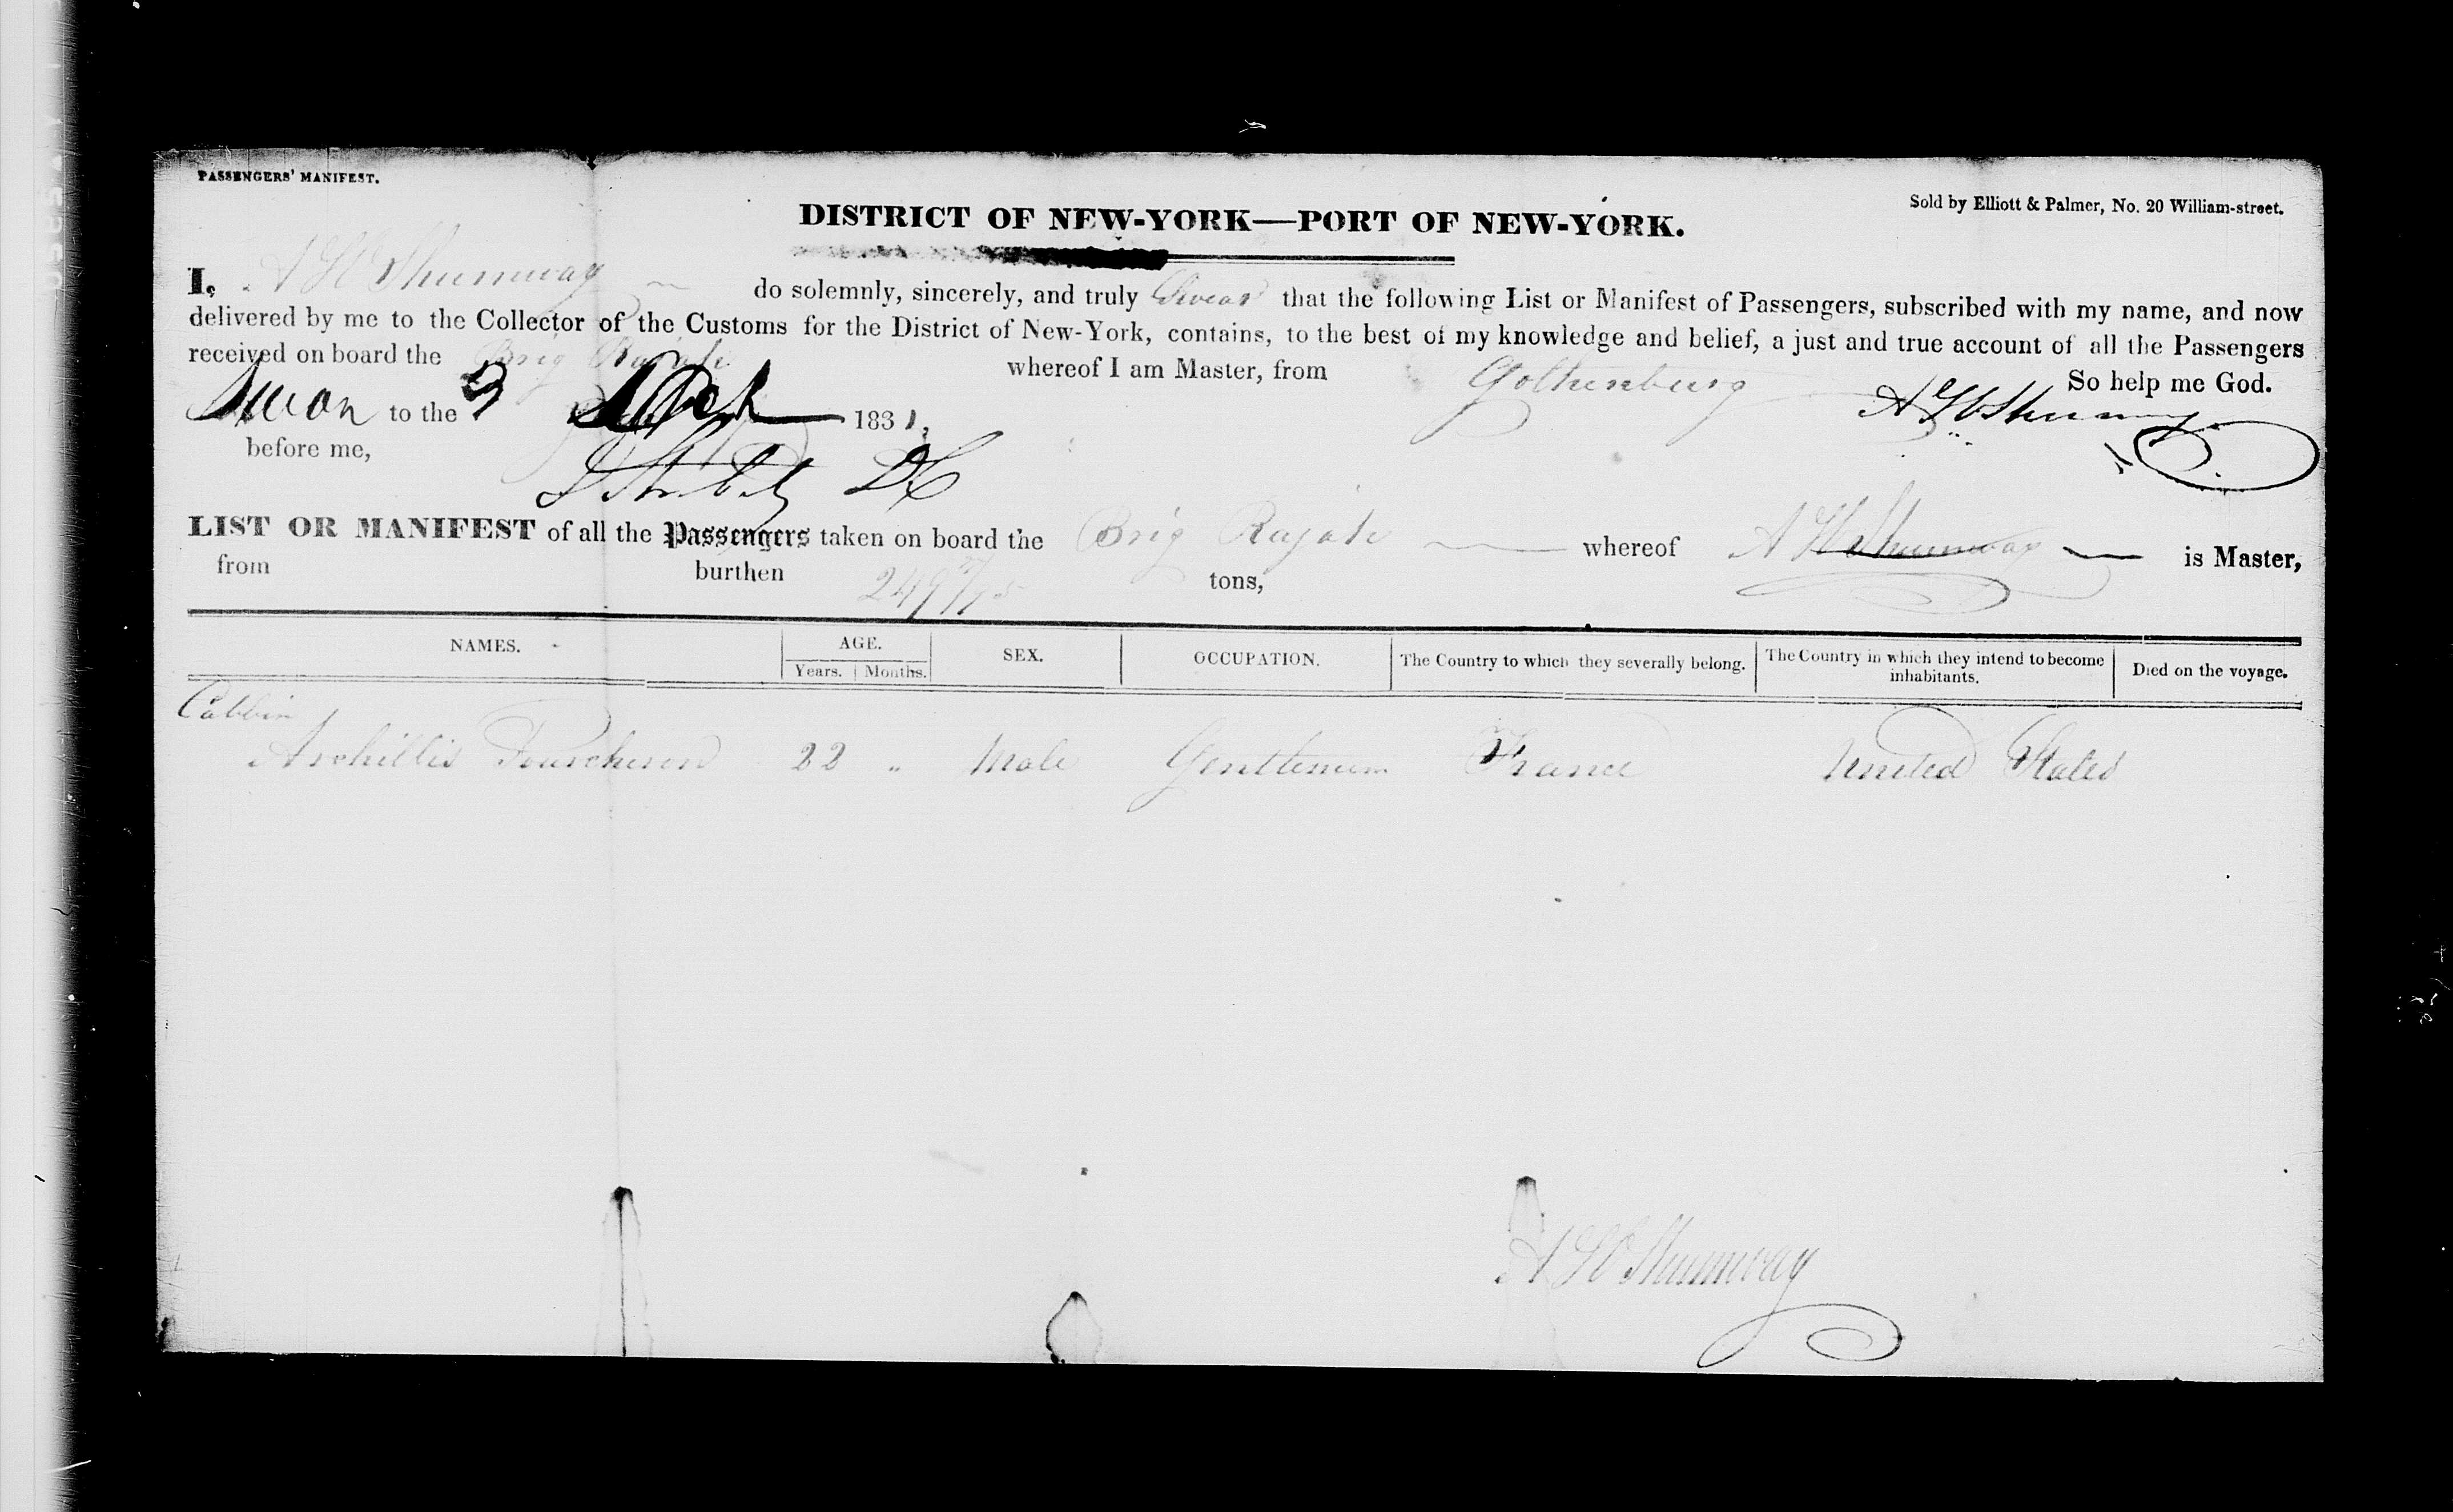 PASSENGERS' MANIFEST.
Sold by Elliott & Palmer, No. 20 William-street.
DISTRICT OF NEW-YORK—PORT OF NEW-YORK.
I, A W Shumway do solemnly, sincerely, and truly Swear that the following List or Manifest of Passengers, subscribed with my name, and now
delivered by me to the Collector of the Customs for the District of New-York, contains, to the best of my knowledge and belief, a just and true account of all the Passengers
received on board the Brig Rajah whereof I am Master, from Gothenburg So help me God.
Sworn to the 3 Sept 1831, A W Shumway
before me,
LIST OR MANIFEST of all the Passengers taken on board the Brig Rajah whereof A W Shumway is Master,
from burthen 249 /95 tons,
NAMES. AGE. SEX. OCCUPATION. The Country to which they severally belong. The Country in which they intend to become inhabitants. Died on the voyage.
Years. Months.
Cabbin
Archillis Fourcheron 22 " Male Gentleman France United States
A W Shumway